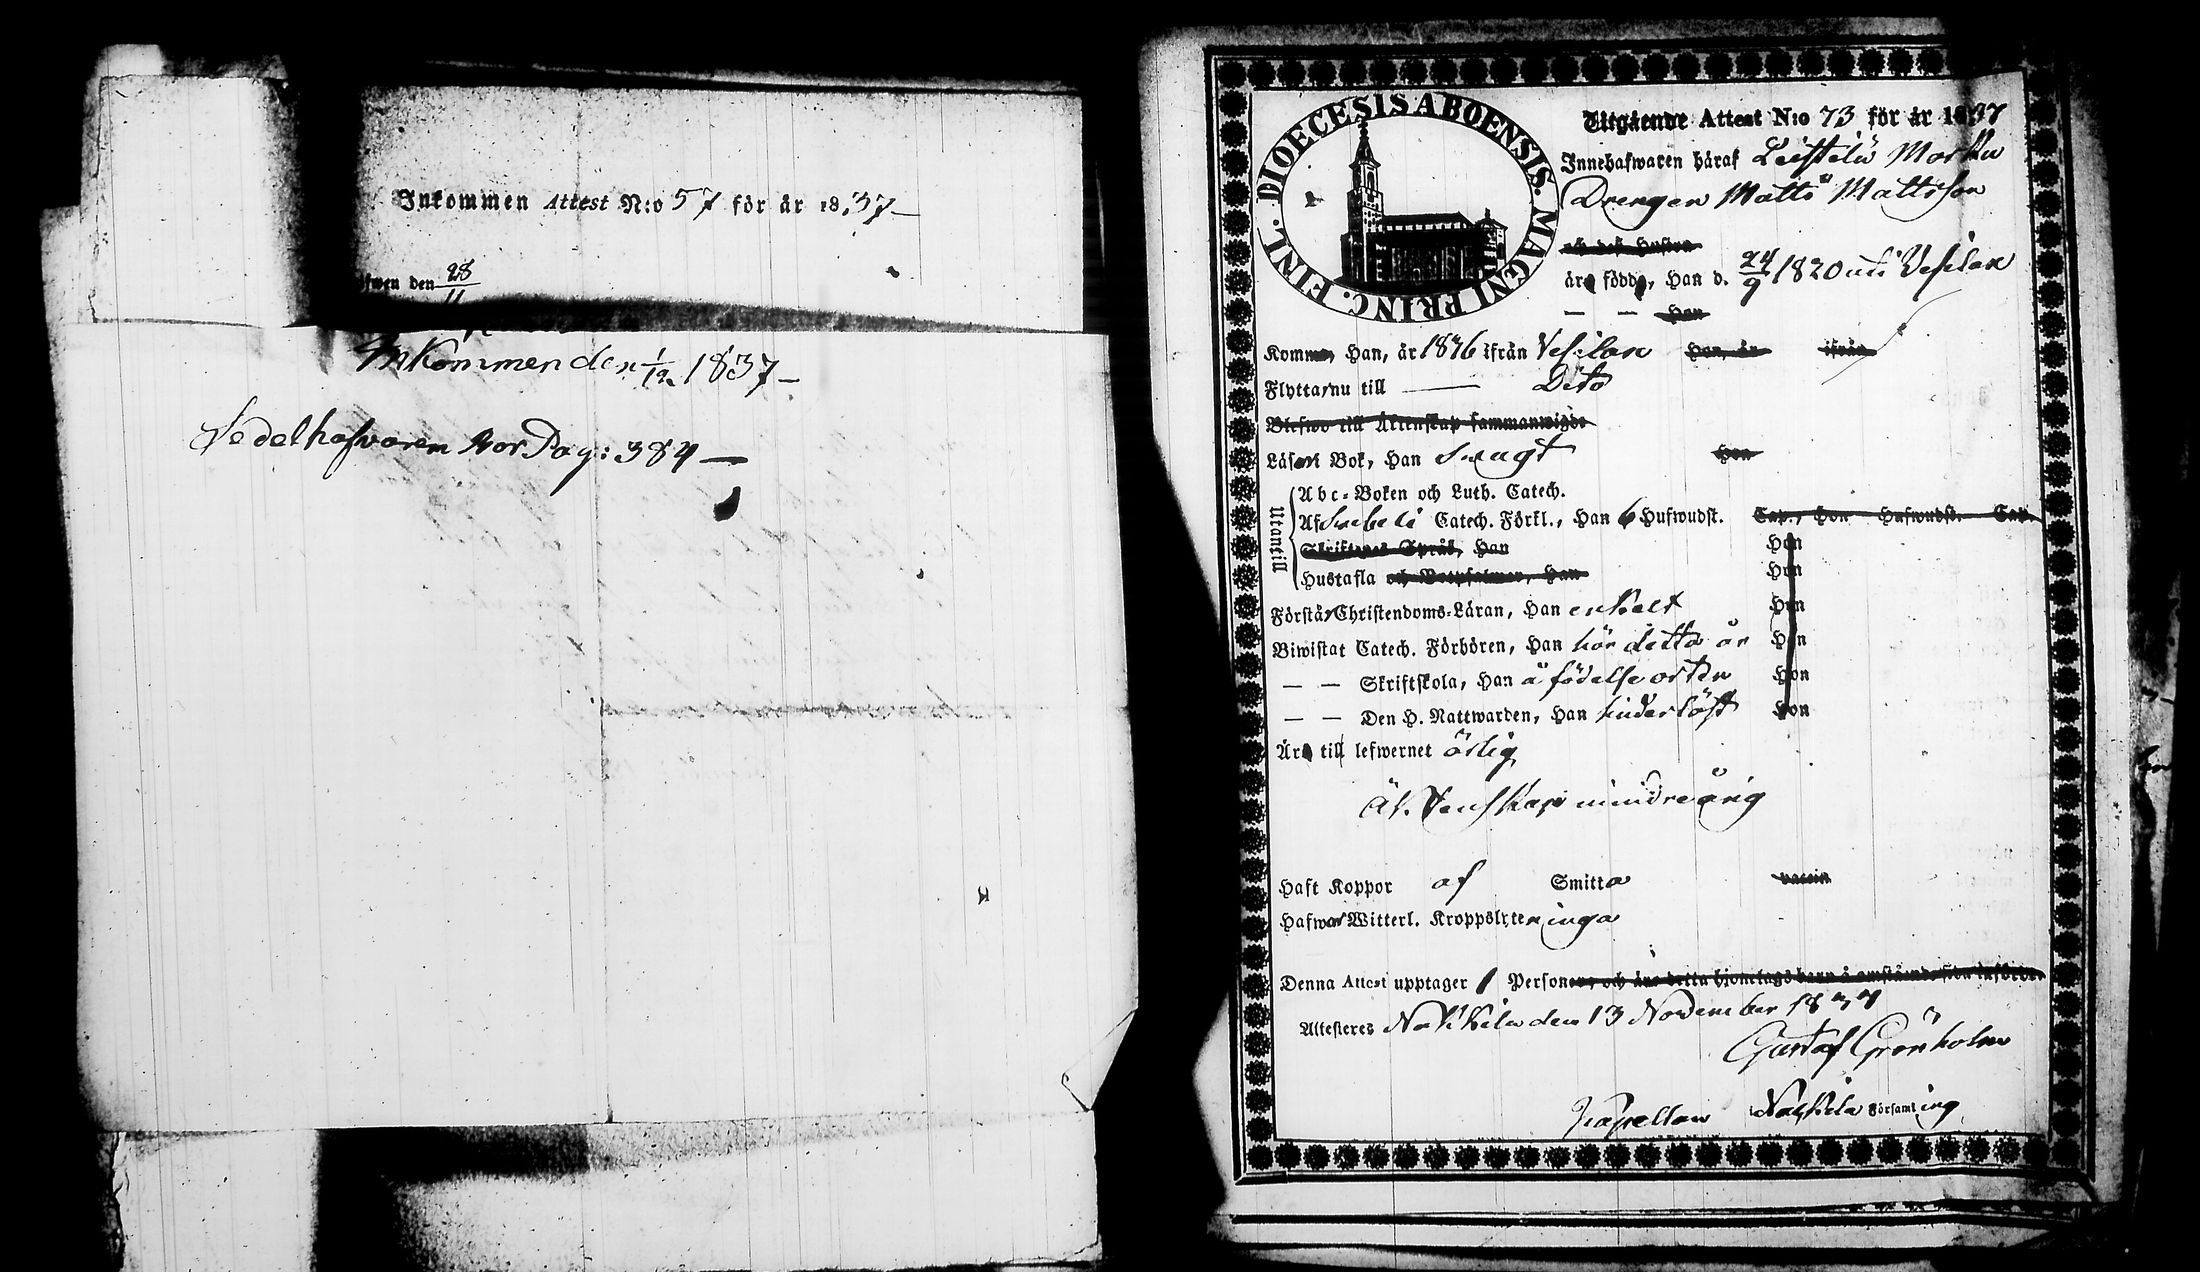 Inkommen Attest N:o 57 för år 1837
fwen den 28/11
Inkommen den 1/12 1837
Sedelhafvaren vor Pag: 384
DIOECESIS ABOENSIS. MAGNI PRINC. FINL.
Utgående Attest N:o 73 för år 1837
Innehafwaren häraf Leistilä
Drengen Matts Mattsson
och dess Hustru
äro födde, Han d. 24/9 1820 uti Vesilax
— — Hon
Kommo, Han, år 1836 ifrån Vesilax Hon, år ifrån
Flytta nu till — Dito
Blefwo till Äktenskap sammanwigde
Läsa i Bok, Han swagt Hon
Utantill
Abc-Boken och Luth. Catech.
Af Svebelii Catech. Förkl., Han 6 Hufwudst. Cap., Hon Hufwudst. Cap.
Skriftenes Språk, Han Hon
Hustafla och Botpsalmer, Han Hon
Förstå Christendoms-Läran, Han enkelt Hon
Biwistat Catech. Förhören, Han här detta år Hon
— — Skriftskola, Han å födelse orten Hon
— — Den H. Nattwarden, Han hinderlöst Hon
Äro till lefwernet ärlig
Äktenskap mindreårig
Haft Koppor af Smitta vaccin
Hafwa Witterl. Kroppslyten inga
Denna Attest upptager 1 Personer, och
Attesteres Nakkila den 13 November 1837
Gustaf Grönholm
Kapellan Nakkila Församling